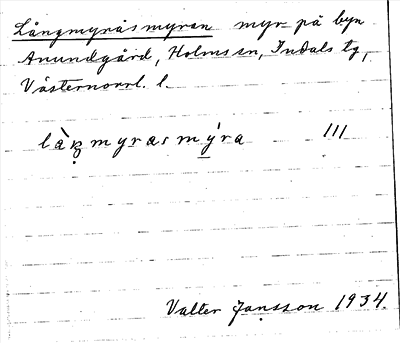 Långmyråsmyran myr på byn
Anundgård, Holms sn, Indals tg,
Västernorrl. l.
làꞑmyrasmýra III
Valter Jansson 1934.